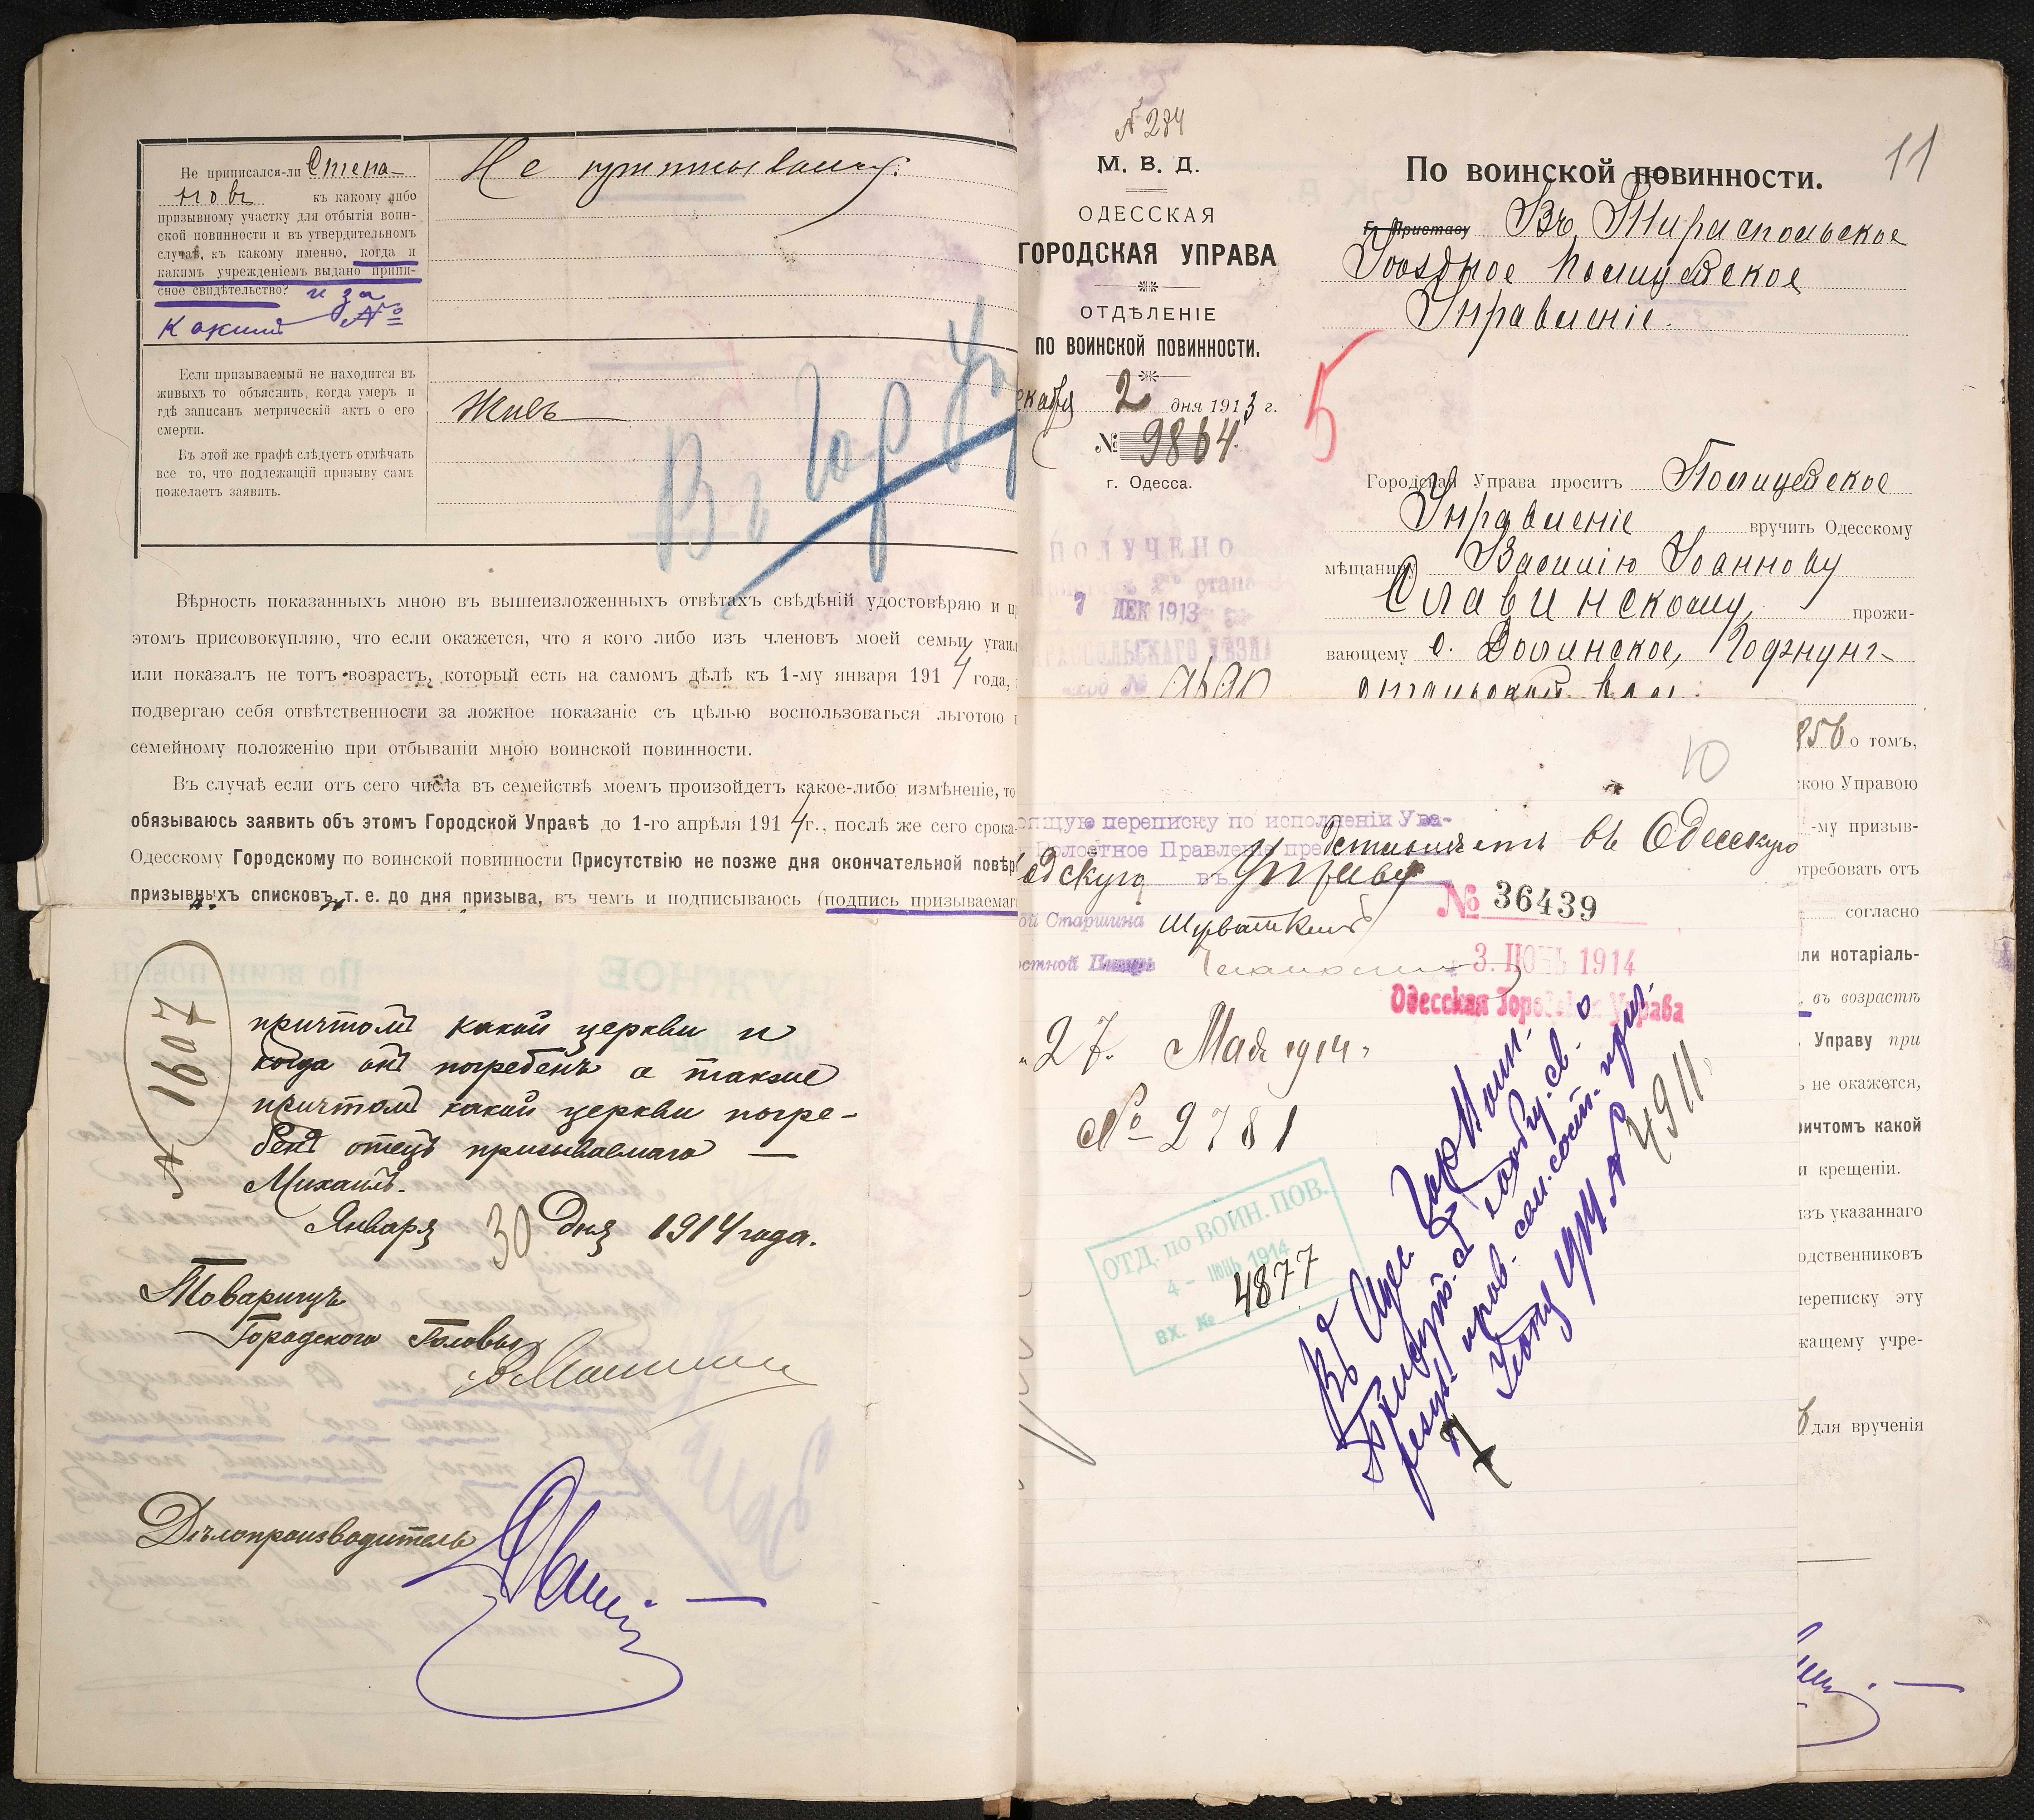 Не приписался-ли Степа-
новъ къ какому либо
призывному участку для отбытія воин-
ской повинности и въ утвердительномъ
случаѣ, къ какому именно, когда и
какимъ учрежденіемъ выдано припи-
сное свидѣтельство? и за
какимъ №
Если призываемый не находится въ
живыхъ то объяснить, когда умеръ и
гдѣ записанъ метрическій актъ о его
смерти.
Въ этой же графѣ слѣдуетъ отмѣчать
все то, что подлежащій призыву самъ
пожелаетъ заявить.
Живъ
Въ Гор Уп
Вѣрность показанныхъ мною въ вышеизложенныхъ отвѣтахъ свѣдѣній удостовѣряю и пр
этомъ присовокупляю, что если окажется, что я кого либо изъ членовъ моей семьи утаил
или показалъ не тотъ возрастъ, который есть на самомъ дѣлѣ къ 1-му января 1914 года,
подвергаю себя отвѣтственности за ложное показаніе съ цѣлью воспользоваться льготою
семейному положенію при отбываніи мною воинской повинности.
Въ случаѣ если отъ сего числа въ семействѣ моемъ произойдетъ какое-либо измѣненіе, то
обязываюсь заявить объ этомъ Городской Управѣ до 1-го апрѣля 1914 г., послѣ же сего срока-
Одесскому Городскому по воинской повинности Присутствію не позже дня окончательной повѣр
призывныхъ списковъ, т. е. до дня призыва, въ чемъ и подписываюсь (подпись призываемаг
№ 1607
причтомъ какой церкви и
когда онъ погребенъ а также
причтомъ какой церкви погре-
бенъ отецъ призываемаго —
Михаилъ.
Января 30 дня 1914 года.
Товарищъ
Городского Головы
Дѣлопроизводитель
№ 284
М. В. Д.
ОДЕССКАЯ
ГОРОДСКАЯ УПРАВА
ОТДѢЛЕНІЕ
ПО ВОИНСКОЙ ПОВИННОСТИ.
екабря 2 дня 1913 г.
№ 9864.
г. Одесса.
ПОЛУЧЕНО
2го стана
7 ДЕК 1913
РАСПОЛЬСКАГО УѢЗДА
ход №
11
По воинской повинности.
Г. Приставу Въ Тираспольское
Уѣздное Полицейское
Управленіе.
5
Городская Управа проситъ Полицейское
Управленіе вручить Одесскому
мѣщанину Василію Іоаннову
Славинскому, прожи-
вающему с. Долинское,
856 о томъ,
скою Управою
-му призыв-
отребовать отъ
согласно
или нотаріаль-
въ возрастѣ
Управу при
ъ не окажется,
ричтомъ какой
и крещеніи.
изъ указаннаго
одственниковъ
переписку эту
жащему учре-
для врученія
10
ящую переписку по исполненіи Ува-
Волостное Правленіе представляетъ въ Одесскую
одскую въ Управу
ой Старшина
остной Писарь
№ 36439
3. ІЮНЬ 1914
Одесская Городская Управа
27. Мая 1914
№ 2781
ОТД. по ВОИН. ПОВ.
4 - ІЮНЬ 1914
ВХ. № 4877
Въ Одес Гор
4911